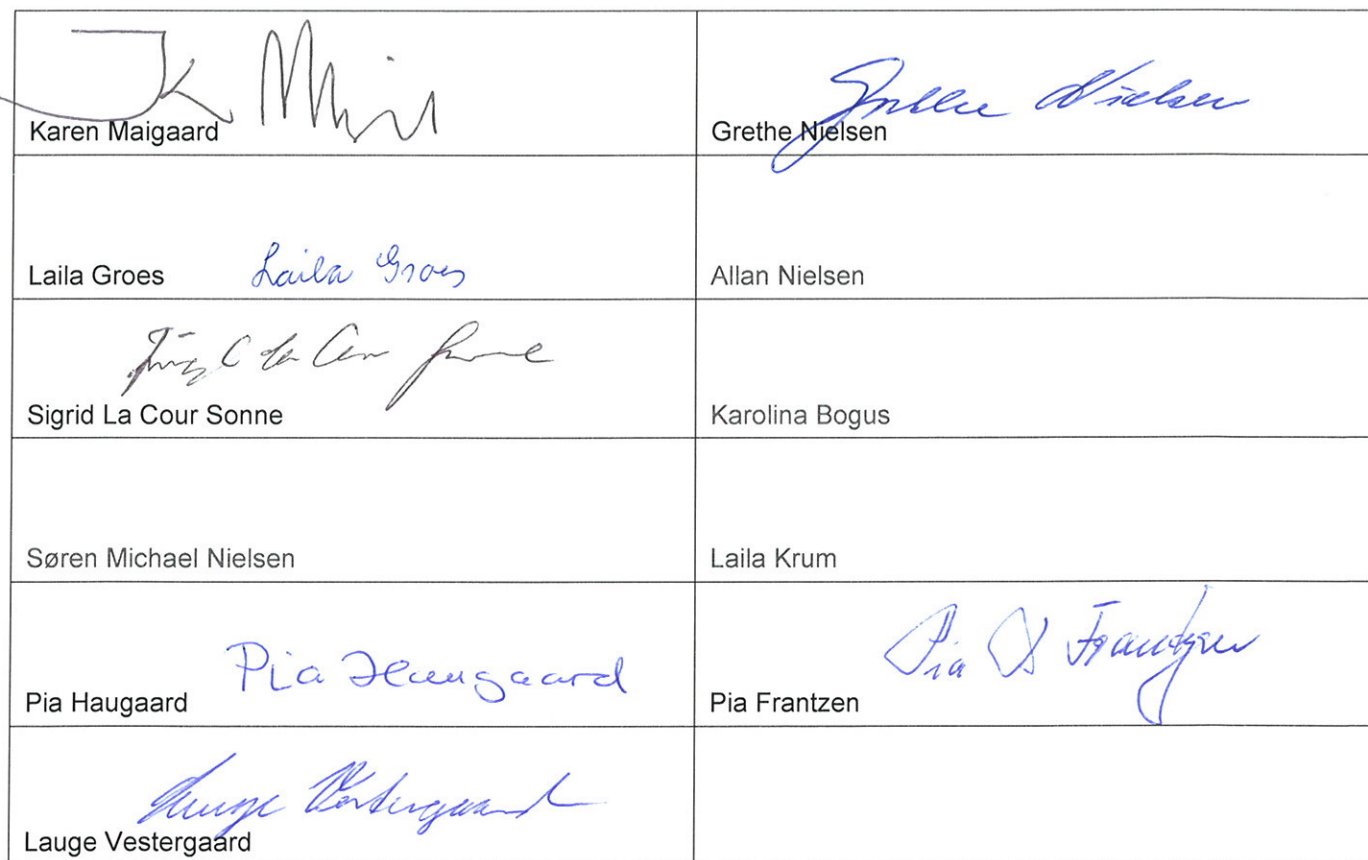 Karen Maigaard
Grethe Nielsen
Nielsen
Laila Groes
Laila Groes
Allan Nielsen
Sigrid La Cour Sonne
Karolina Bogus
Søren Michael Nielsen
Laila Krum
Pia Haugaard
Pia Haugaard
Pia Frantzen
Pia Frantzen
Lauge Vestergaard
Lauge Vestergaard